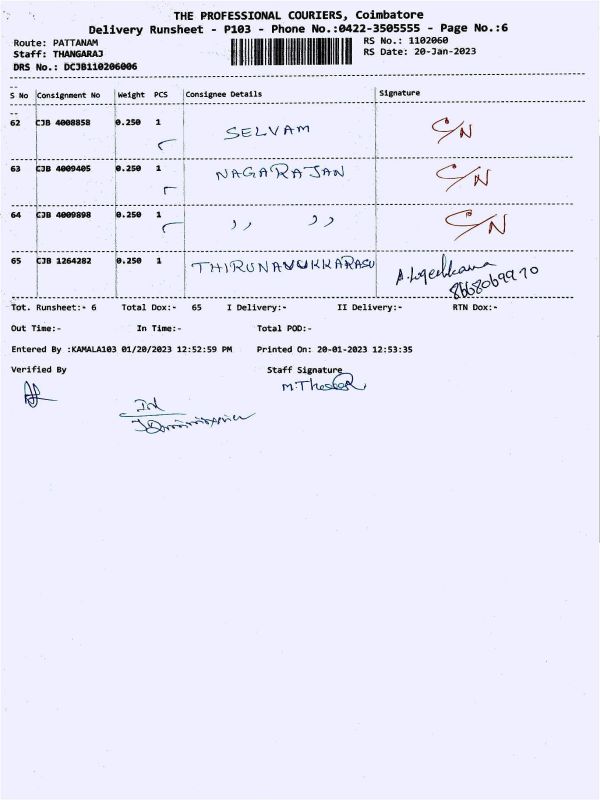 THE PROFESSIONAL COURIERS, Coimbatore
Delivery Runsheet - P103 - Phone No.:0422-3505555 - Page No.:6
Route: PATTANAM RS No.: 1102060
Staff: THANGARAJ RS Date: 20-Jan-2023
DRS No.: DCJB110206006
S No Consignment No Weight PCS Consignee Details Signature
62 CJB 4008858 0.250 1 SELVAM C/N
63 CJB 4009405 0.250 1 NAGARAJAN C/N
64 CJB 4009898 0.250 1 ,, ,, C/N
65 CJB 1264282 0.250 1 THIRUNAVUKKARASU
Tot. Runsheet:- 6 Total Dox:- 65 I Delivery:- II Delivery:- RTN Dox:-
Out Time:- In Time:- Total POD:-
Entered By :KAMALA103 01/20/2023 12:52:59 PM Printed On: 20-01-2023 12:53:35
Verified By Staff Signature